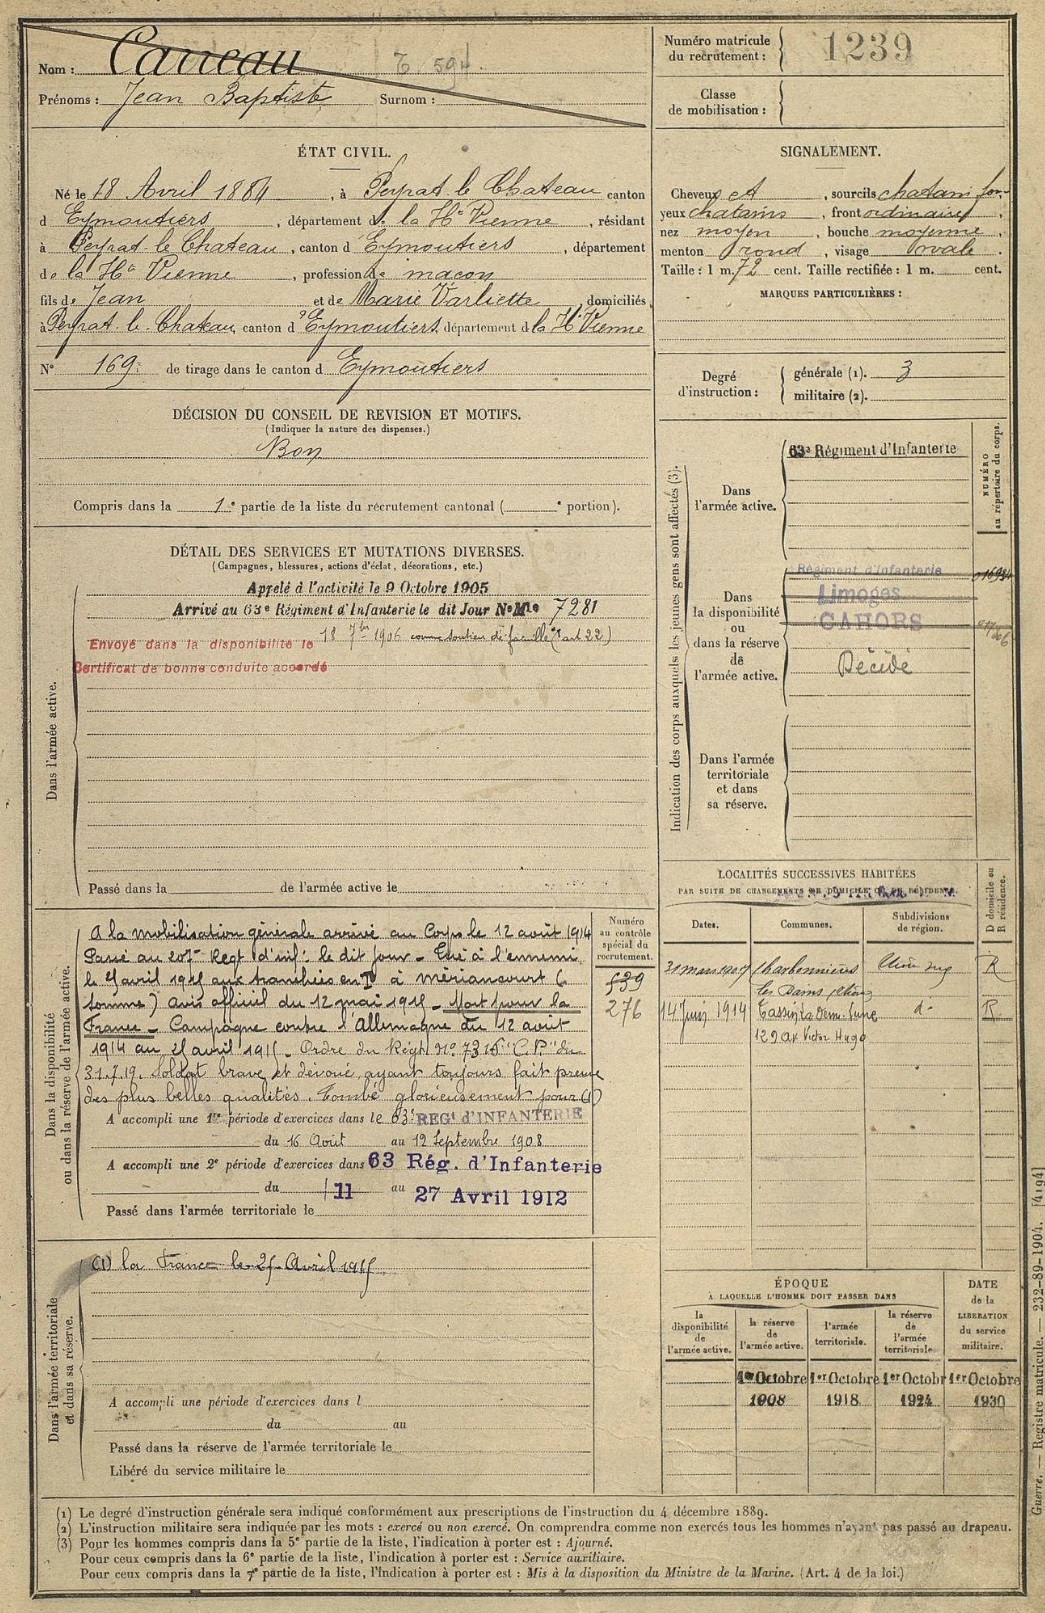 Nom : Carreau T. 594.
Prénoms : Jean Baptiste Surnom :
Numéro matricule du recrutement : 1239
Classe de mobilisation :
ÉTAT CIVIL.
Né le 18 Avril 1884, à Peyrat le Chateau canton
d'Eymoutiers, département de la Hte Vienne, résidant
à Peyrat le Chateau, canton d'Eymoutiers, département
de la Hte Vienne, profession de maçon
fils de Jean et de Marie Varliette domiciliés
à Peyrat le Chateau canton d'Eymoutiers, département de la Hte Vienne
No 169. de tirage dans le canton d'Eymoutiers
SIGNALEMENT.
Cheveux et, sourcils chatain,
yeux chatains, front ordinaire,
nez moyen, bouche moyenne,
menton rond, visage ovale.
Taille : 1 m. 72 cent. Taille rectifiée : 1 m. cent.
MARQUES PARTICULIÈRES :
Degré d'instruction : générale (1). 3
militaire (2).
DÉCISION DU CONSEIL DE REVISION ET MOTIFS.
(Indiquer la nature des dispenses.)
Bon
Compris dans la 1e partie de la liste du récrutement cantonal ( e portion).
DÉTAIL DES SERVICES ET MUTATIONS DIVERSES.
(Campagnes, blessures, actions d'éclat, décorations, etc.)
Dans l'armée active.
Appelé à l'activité le 9 Octobre 1905
Arrivé au 63e Régiment d'Infanterie le dit Jour No Mle 7281
Envoyé dans la disponibilité le 18 7bre 1906 comme soutien de famille (art 22)
Certificat de bonne conduite accordé
Passé dans la de l'armée active le
Indication des corps auxquels les jeunes gens sont affectés (3).
NUMÉRO au répertoire du corps.
Dans l'armée active.
63e Régiment d'Infanterie
Dans la disponibilité ou dans la réserve de l'armée active.
Régiment d'Infanterie
Limoges
CAHORS
Décédé
Dans l'armée territoriale et dans sa réserve.
LOCALITÉS SUCCESSIVES HABITÉES
PAR SUITE DE CHANGEMENTS DE DOMICILE OU DE RÉSIDENCE.
Dates. Communes. Subdivisions de région. D domicile ou R résidence.
31 mars 1907 Charbonnières R
14 Juin 1914 Tassin la Demi Lune d° R
129 av Victor Hugo
Dans la disponibilité ou dans la réserve de l'armée active.
Numéro au contrôle spécial du recrutement.
539
276
A la mobilisation générale arrivé au Corps le 12 août 1914
Passé au 207me Regt d'inf. le dit jour - Tué à l'ennemi
le 25 avril 1915 aux tranchées en D à Méricourt (
Somme) avis officiel du 12 mai 1915 - Mort pour la
France - Campagne contre l'Allemagne du 12 août
1914 au 25 avril 1915 - Ordre du Régt No 7315 "C.P" du
31.7.19. Soldat brave et dévoué, ayant toujours fait preuve
des plus belles qualités. Tombé glorieusement pour (1)
A accompli une 1re période d'exercices dans le 63e REGt d'INFANTERIE
du 16 Août au 12 Septembre 1908
A accompli une 2e période d'exercices dans 63 Rég. d'Infanterie
du 11 au 27 Avril 1912
Passé dans l'armée territoriale le
Dans l'armée territoriale et dans sa réserve.
(1) la France le 25 Avril 1915
A accompli une période d'exercices dans l
du au
Passé dans la réserve de l'armée territoriale le
Libéré du service militaire le
ÉPOQUE À LAQUELLE L'HOMME DOIT PASSER DANS
la disponibilité de l'armée active. la réserve de l'armée active. l'armée territoriale. la réserve de l'armée territoriale.
DATE de la LIBÉRATION du service militaire.
1er Octobre 1er Octobre 1er Octobr 1er Octobre
1908 1918 1924 1930
(1) Le degré d'instruction générale sera indiqué conformément aux prescriptions de l'instruction du 4 décembre 1889.
(2) L'instruction militaire sera indiquée par les mots : exercé ou non exercé. On comprendra comme non exercés tous les hommes n'ayant pas passé au drapeau.
(3) Pour les hommes compris dans la 5e partie de la liste, l'indication à porter est : Ajourné.
Pour ceux compris dans la 6e partie de la liste, l'indication à porter est : Service auxiliaire.
Pour ceux compris dans la 7e partie de la liste, l'indication à porter est : Mis à la disposition du Ministre de la Marine. (Art. 4 de la loi.)
Guerre. — Registre matricule. — 232-89-1904. [4194]